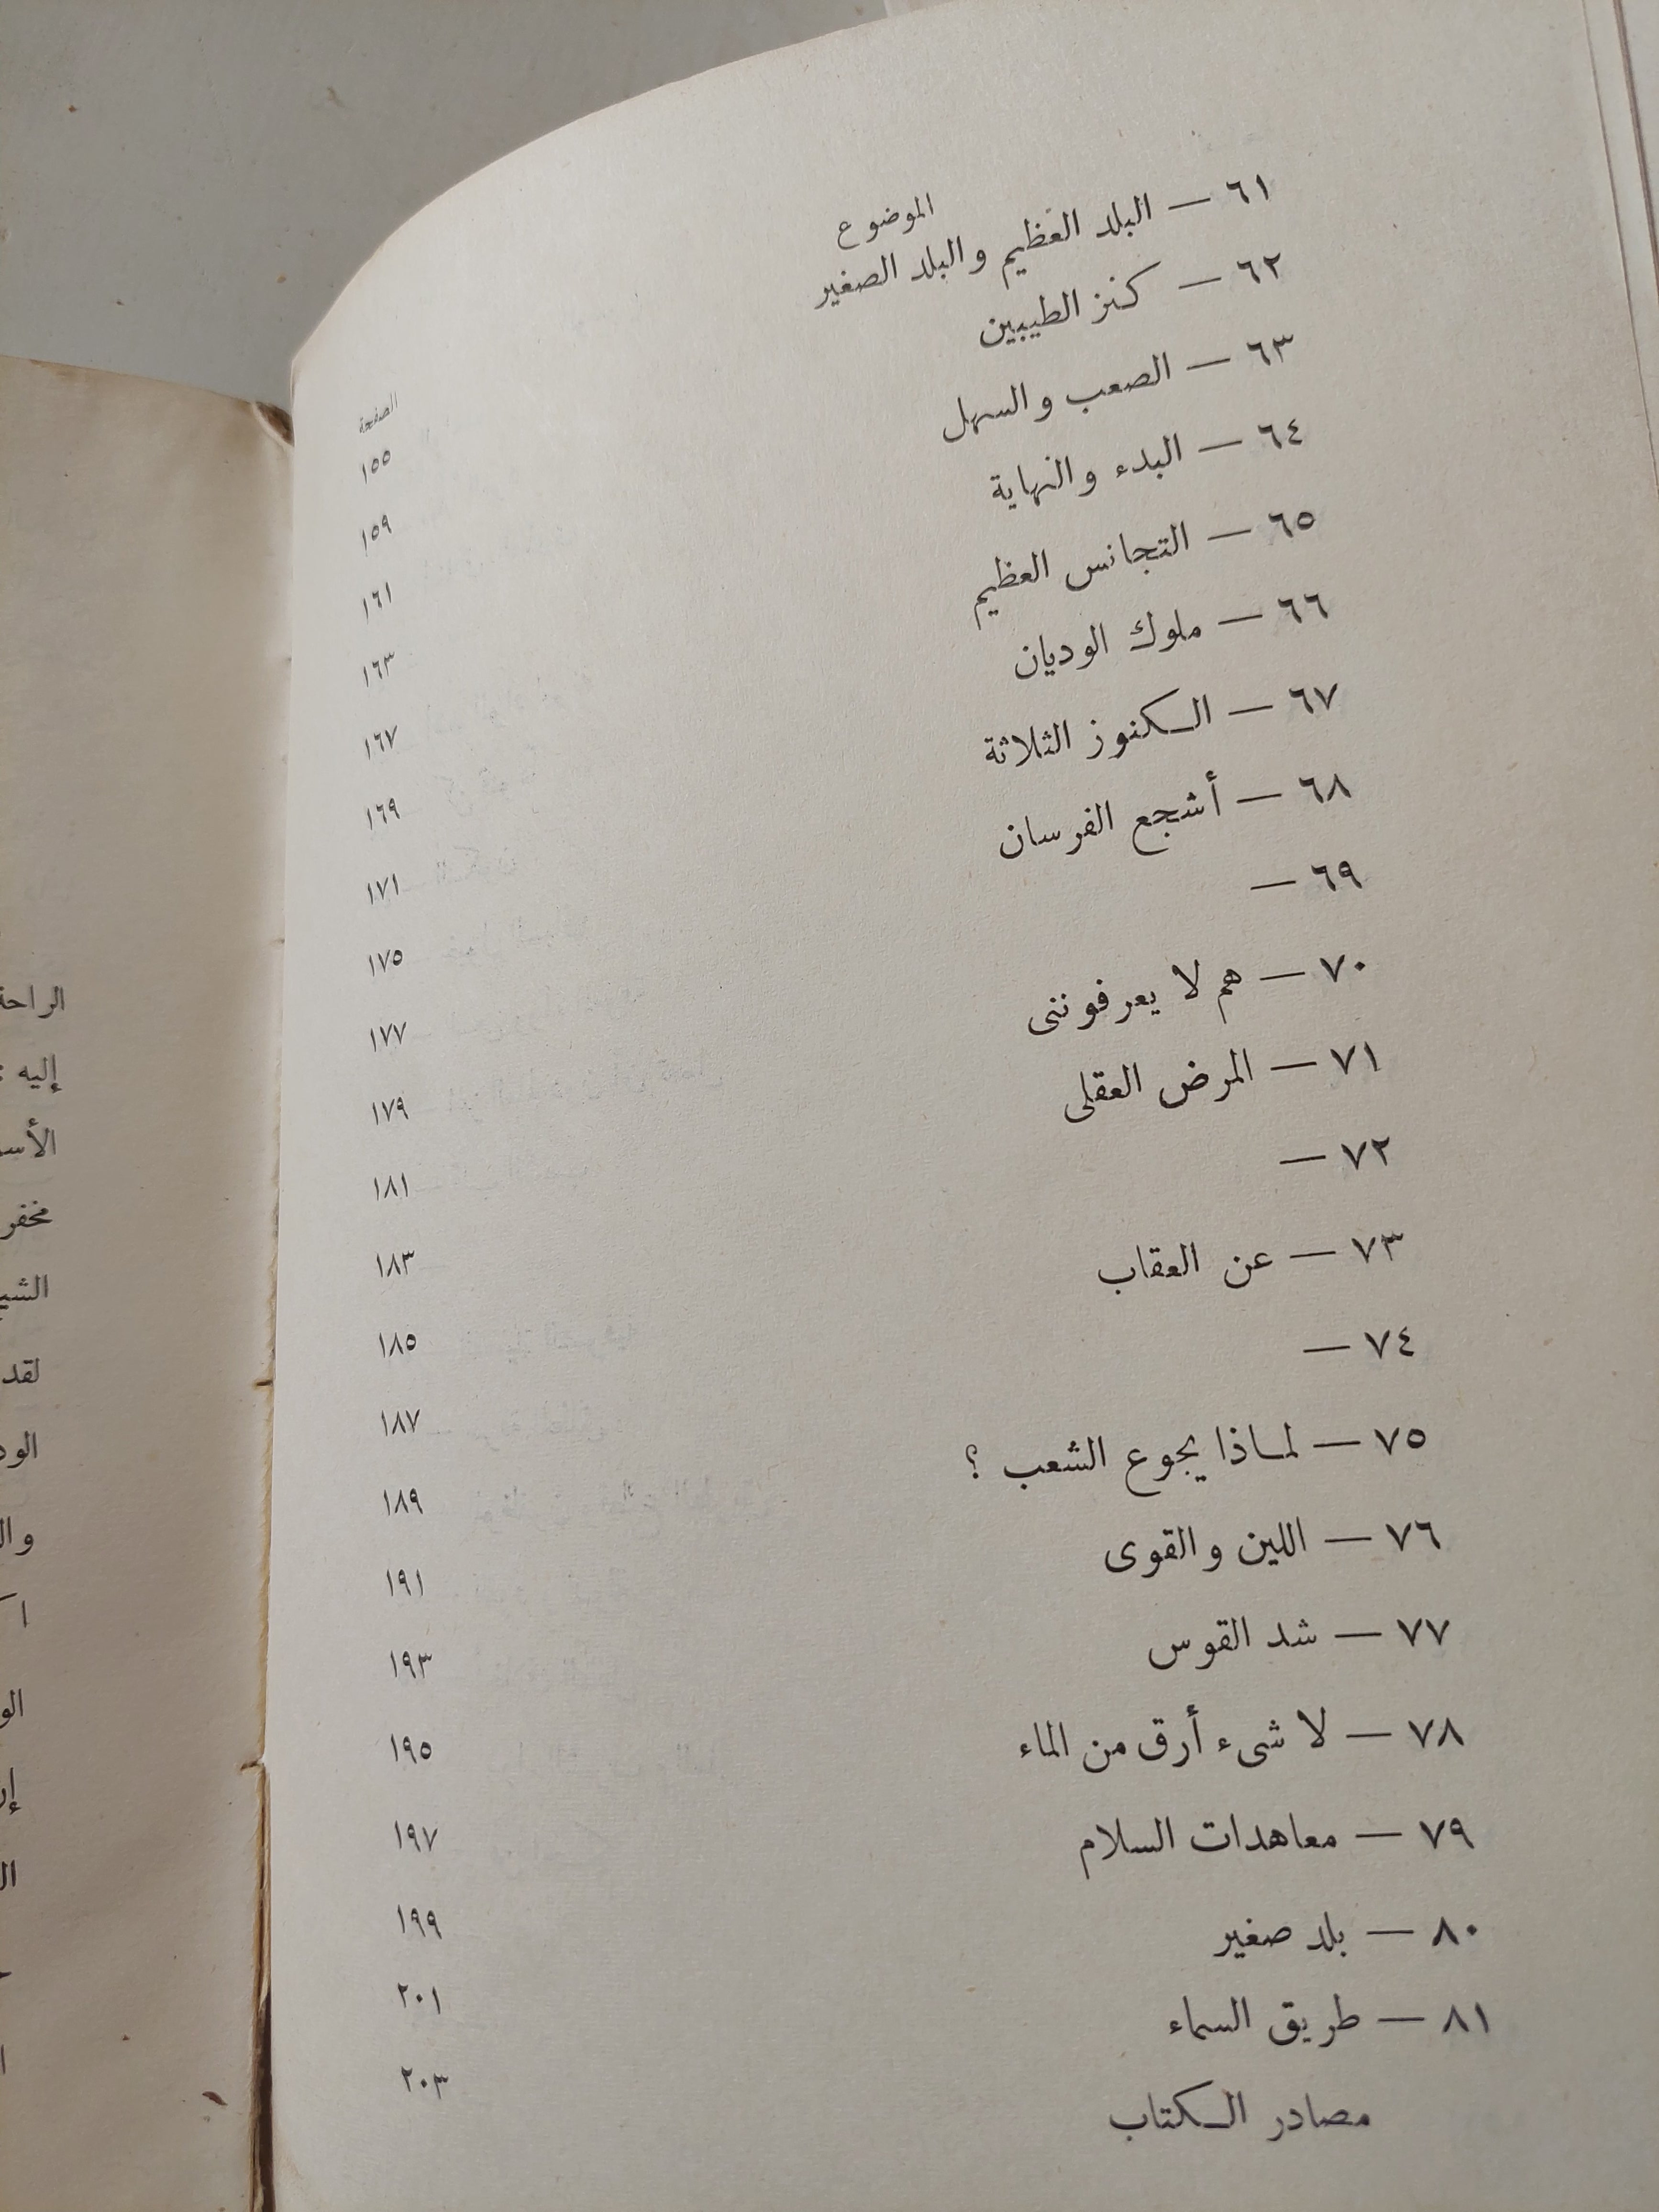 الموضوع الصفحة
٦١ — البلد العظيم والبلد الصغير ١٥٥
٦٢ — كنز الطيبين ١٥٩
٦٣ — الصعب والسهل ١٦١
٦٤ — البدء والنهاية ١٦٣
٦٥ — التجانس العظيم ١٦٧
٦٦ — ملوك الوديان ١٦٩
٦٧ — الكنوز الثلاثة ١٧١
٦٨ — أشجع الفرسان ١٧٥
٦٩ — ١٧٧
٧٠ — هم لا يعرفوننى ١٧٩
٧١ — المرض العقلى ١٨١
٧٢ — ١٨٣
٧٣ — عن العقاب ١٨٥
٧٤ — ١٨٧
٧٥ — لماذا يجوع الشعب ؟ ١٨٩
٧٦ — اللين والقوى ١٩١
٧٧ — شد القوس ١٩٣
٧٨ — لا شىء أرق من الماء ١٩٥
٧٩ — معاهدات السلام ١٩٧
٨٠ — بلد صغير ١٩٩
٨١ — طريق السماء ٢٠١
مصادر الكتاب ٢٠٣
الراحة
إليه :
لقد